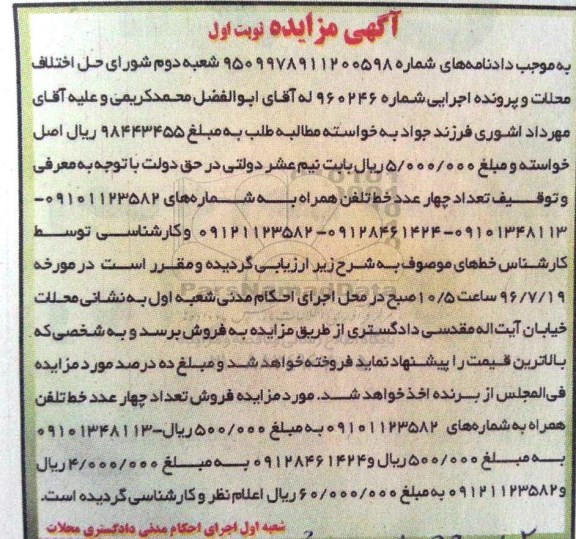 آگهی مزایده نوبت اول
به موجب دادنامه‌های شماره ۹۵۰۹۹۷۸۹۱۱۲۰۰۵۹۸ شعبه دوم شورای حل اختلاف
محلات و پرونده اجرایی شماره ۹۶۰۲۴۶ له آقای ابوالفضل محمدکریمی و علیه آقای
مهرداد اشوری فرزند جواد به خواسته مطالبه طلب به مبلغ ۹۸۴۴۳۴۵۵ ریال اصل
خواسته و مبلغ ۵/۰۰۰/۰۰۰ ریال بابت نیم عشر دولتی در حق دولت با توجه به معرفی
و توقیف تعداد چهار عدد خط تلفن همراه به شماره‌های ۰۹۱۰۱۱۲۳۵۸۲-
۰۹۱۰۱۳۴۸۱۱۳-۰۹۱۲۸۴۶۱۴۲۴-۰۹۱۲۱۱۲۳۵۸۲ و کارشناسی توسط
کارشناس خط‌های موصوف به شرح زیر ارزیابی گردیده و مقرر است در مورخه
۹۶/۷/۱۹ ساعت ۱۰/۵ صبح در محل اجرای احکام مدنی شعبه اول به نشانی محلات
خیابان آیت اله مقدسی دادگستری از طریق مزایده به فروش برسد و به شخصی که
بالاترین قیمت را پیشنهاد نماید فروخته خواهد شد و مبلغ ده درصد مورد مزایده
فی المجلس از برنده اخذ خواهد شد. مورد مزایده فروش تعداد چهار عدد خط تلفن
همراه به شماره‌های ۰۹۱۰۱۱۲۳۵۸۲ به مبلغ ۵۰۰/۰۰۰ ریال-۰۹۱۰۱۳۴۸۱۱۳
به مبلغ ۵۰۰/۰۰۰ ریال و ۰۹۱۲۸۴۶۱۴۲۴ به مبلغ ۴/۰۰۰/۰۰۰ ریال
و ۰۹۱۲۱۱۲۳۵۸۲ به مبلغ ۶۰/۰۰۰/۰۰۰ ریال اعلام نظر و کارشناسی گردیده است.
شعبه اول اجرای احکام مدنی دادگستری محلات
ParsNamadData